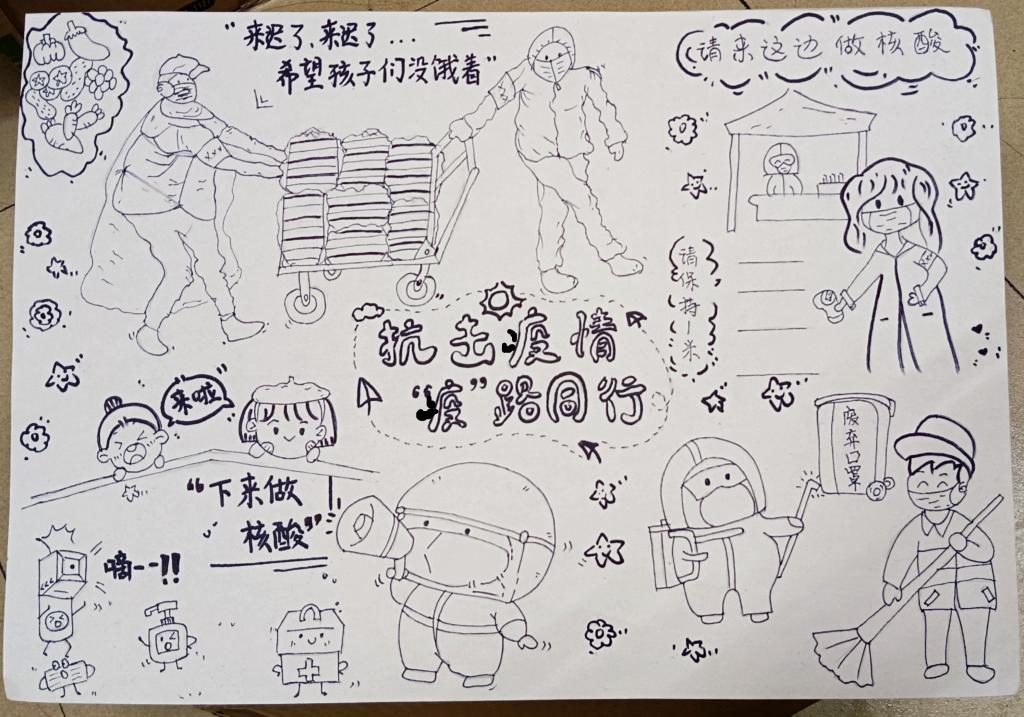 “来迟了、来迟了...
希望孩子们没饿着”
请来这边做核酸
请保持1米
抗击疫情
“疫”路同行
来啦
“下来做
核酸”
嘀--!!
废弃口罩